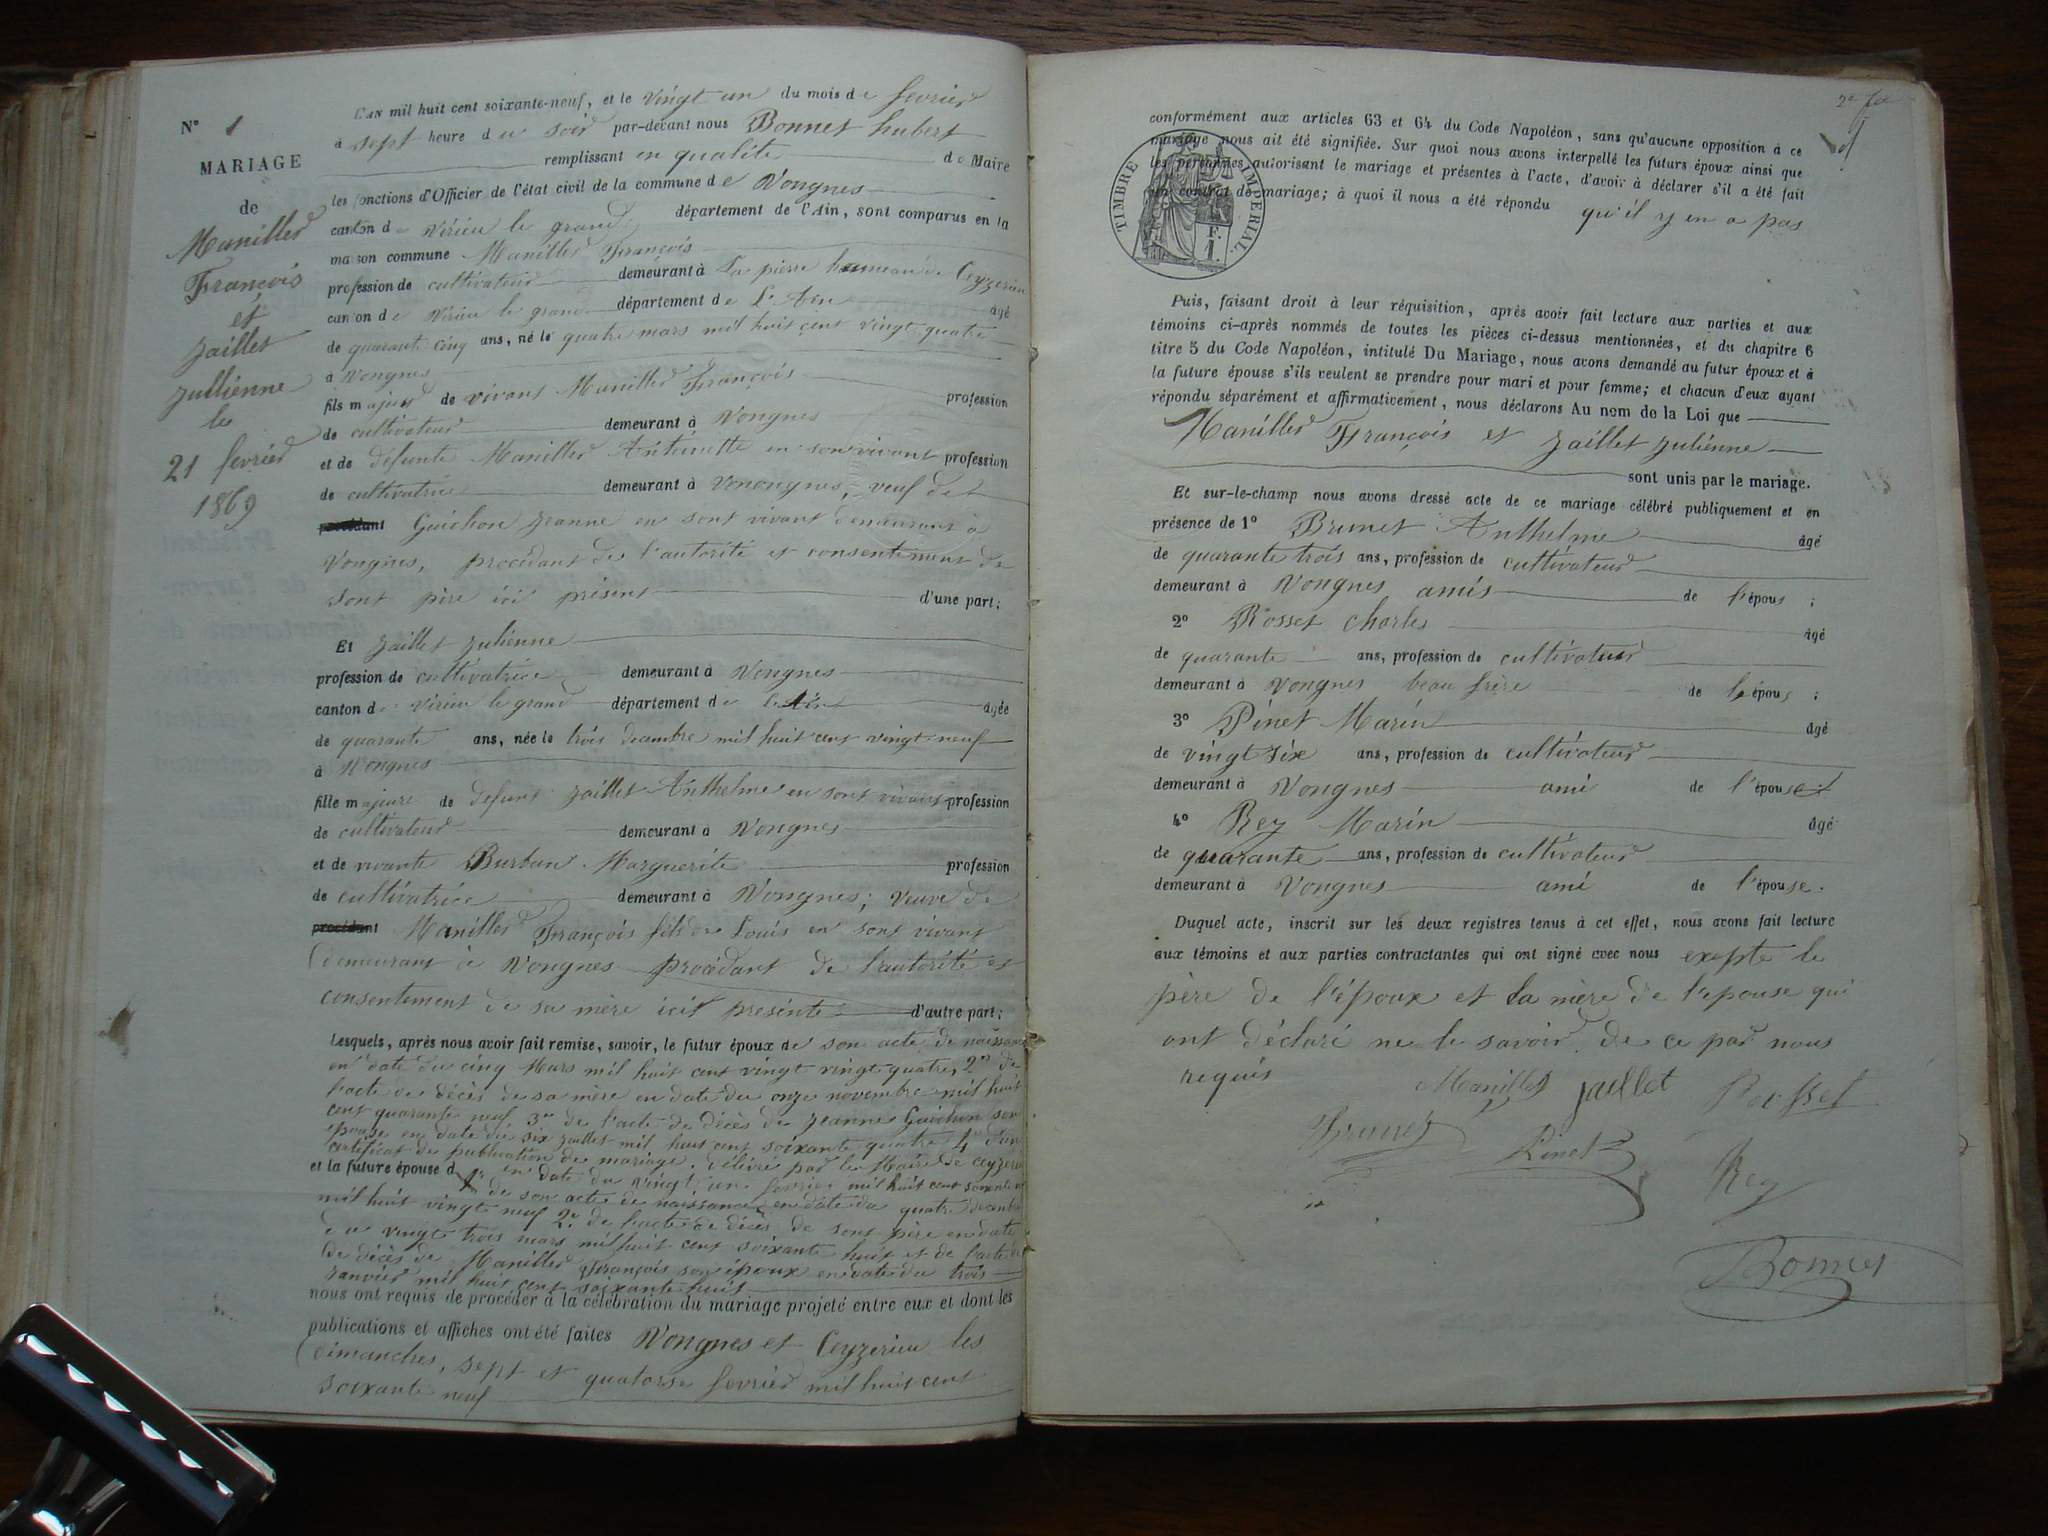 N° 1
MARIAGE
de
Manillier
François
et
Jaillet
Jullienne
le
21 fevrier
1869
L'AN mil huit cent soixante-neuf, et le vingt un du mois de fevrier
à sept heure du soir par-devant nous Bonnet hubert
remplissant en qualite de Maire
les fonctions d'Officier de l'état civil de la commune de Vongnes
canton de Virieu le grand département de l'Ain, sont comparus en la
maison commune Manillier François
profession de cultivateur demeurant à La pierre hameau de Ceyzerieu
canton de Virieu le grand département de L'Ain âgé
de quarante cinq ans, né le quatre mars mil huit cent vingt quatre
à Vongnes
fils majeur de vivant Manillier François profession
de cultivateur demeurant à Vongnes
et de defunte Manillier Antoinette en son vivant profession
de cultivatrice demeurant à Vonongnes, veuf de
procédant Guichon Jeanne en sont vivant demeurant à
Vongnes, procédant de l'autorité et consentement de
sont père ici présent d'une part;
Et Jaillet Julienne
profession de cultivatrice demeurant à Vongnes
canton de Virieu le grand département de l'Ain âgée
de quarante ans, née le trois decembre mil huit cent vingt neuf
à Vongnes
fille majeure de defunt Jaillet Anthelme en sont vivant profession
de cultivateur demeurant à Vongnes
et de vivante Burban Marguerite profession
de cultivatrice demeurant à Vongnes; veuve de
procédant Manillier François fils de Louis en sont vivant
demeurant à Vongnes procédant de l'autorité et
consentement de sa mère icit presente d'autre part;
Lesquels, après nous avoir fait remise, savoir, le futur époux de son acte de naissance
en date du cinq Mars mil huit cent vingt vingt quatre, 2° de
l'acte de décès de sa mère en date du onze novembre mil huit
cent quarante neuf 3° de l'acte de décès de Jeanne Guichon son
epouse en date du six juillet mil huit cent soixante quatre 4° d'un
certificat de publication de mariage, délivré par le Maire de Ceyzerieu
et la future épouse d en date du vingt un fevrier mil huit cent soixante neuf
1° de son acte de naissance en date du quatre decembre
mil huit vingt neuf 2° de l'acte de décès de sont père en date
du vingt trois mars mil huit cent soixante huit et de l'acte de
de décès de Manillier François son époux en date du trois
janvier mil huit cent soixante huit
nous ont requis de procéder à la célébration du mariage projeté entre eux et dont les
publications et affiches ont été faites Vongnes et Ceyzerieu les
dimanches, sept et quatorse fevrier mil huit cent
soixante neuf
conformément aux articles 63 et 64 du Code Napoléon, sans qu'aucune opposition à ce
mariage nous ait été signifiée. Sur quoi nous avons interpellé les futurs époux ainsi que
les personnes autorisant le mariage et présentes à l'acte, d'avoir à déclarer s'il a été fait
un contrat de mariage; à quoi il nous a été répondu qu'il y en a pas
TIMBRE IMPÉRIAL
F.
1.
Puis, faisant droit à leur réquisition, après avoir fait lecture aux parties et aux
témoins ci-après nommés de toutes les pièces ci-dessus mentionnées, et du chapitre 6
titre 5 du Code Napoléon, intitulé Du Mariage, nous avons demandé au futur époux et à
la future épouse s'ils veulent se prendre pour mari et pour femme; et chacun d'eux ayant
répondu séparément et affirmativement, nous déclarons Au nom de la Loi que
Manillier François et Jaillet Julienne
sont unis par le mariage.
Et sur-le-champ nous avons dressé acte de ce mariage célébré publiquement et en
présence de 1° Brunet Anthelme âgé
de quarante trois ans, profession de cultivateur
demeurant à Vongnes amis de l'époux ;
2° Rosset Charles âgé
de quarante ans, profession de cultivateur
demeurant à Vongnes beau frère de l'époux ;
3° Pinet Marin âgé
de vingt six ans, profession de cultivateur
demeurant à Vongnes ami de l'épouse
4° Rey Marin âgé
de quarante ans, profession de cultivateur
demeurant à Vongnes ami de l'épouse.
Duquel acte, inscrit sur les deux registres tenus à cet effet, nous avons fait lecture
aux témoins et aux parties contractantes qui ont signé avec nous exepte le
père de l'époux et la mère de l'epouse qui
ont déclaré ne le savoir de ce par nous
requis
Manillier Jaillet Rosset
Brunet Pinet Rey
Bonnet